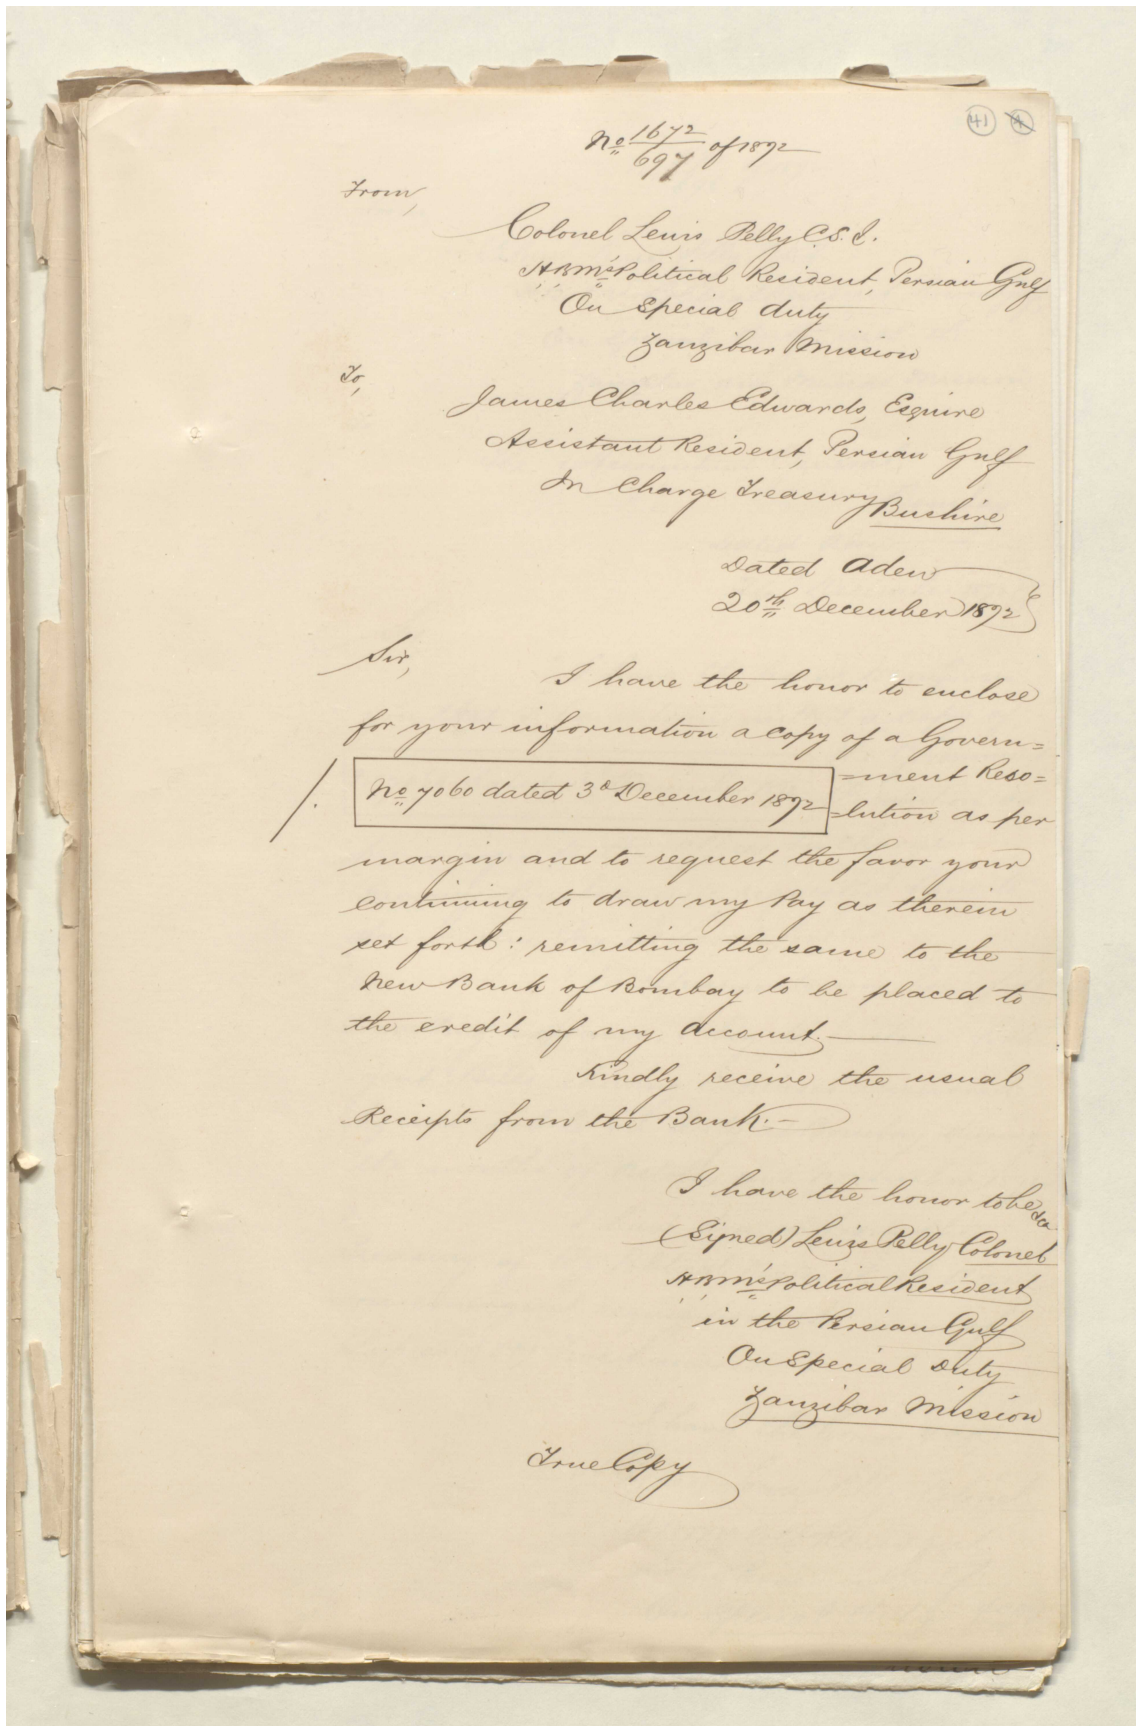 41 4
No 1672/697 of 1872
From,
Colonel Lewis Pelly C.S.I.
H.B.M's Political Resident, Persian Gulf
On Special duty
Zanzibar Mission
To,
James Charles Edwards, Esquire
Assistant Resident, Persian Gulf
In Charge Treasury Bushire
Dated Aden
20th December 1872
Sir,
I have the honor to enclose
for your information a copy of a Govern=
=ment Reso=
No 7060 dated 3d December 1872
=lution as per
margin and to request the favor your
continuing to draw my Pay as therein
set forth: remitting the same to the
New Bank of Bombay to be placed to
the credit of my account.—
Kindly receive the usual
Receipts from the Bank.—
I have the honor to be &ca
(Signed) Lewis Pelly Colonel
H.B.M's Political Resident
in the Persian Gulf
On Special Duty
Zanzibar Mission
True Copy